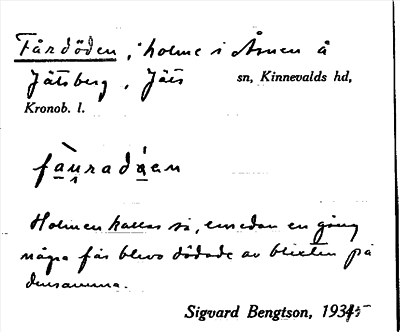 Fårdöden, holme i Åsnen å
Jätsberg, Jäts sn, Kinnevalds hd,
Kronob. l.
Holmen kallas så, emedan en gång
några får blevo dödade av blixten på
densamma.
Sigvard Bengtson, 1934